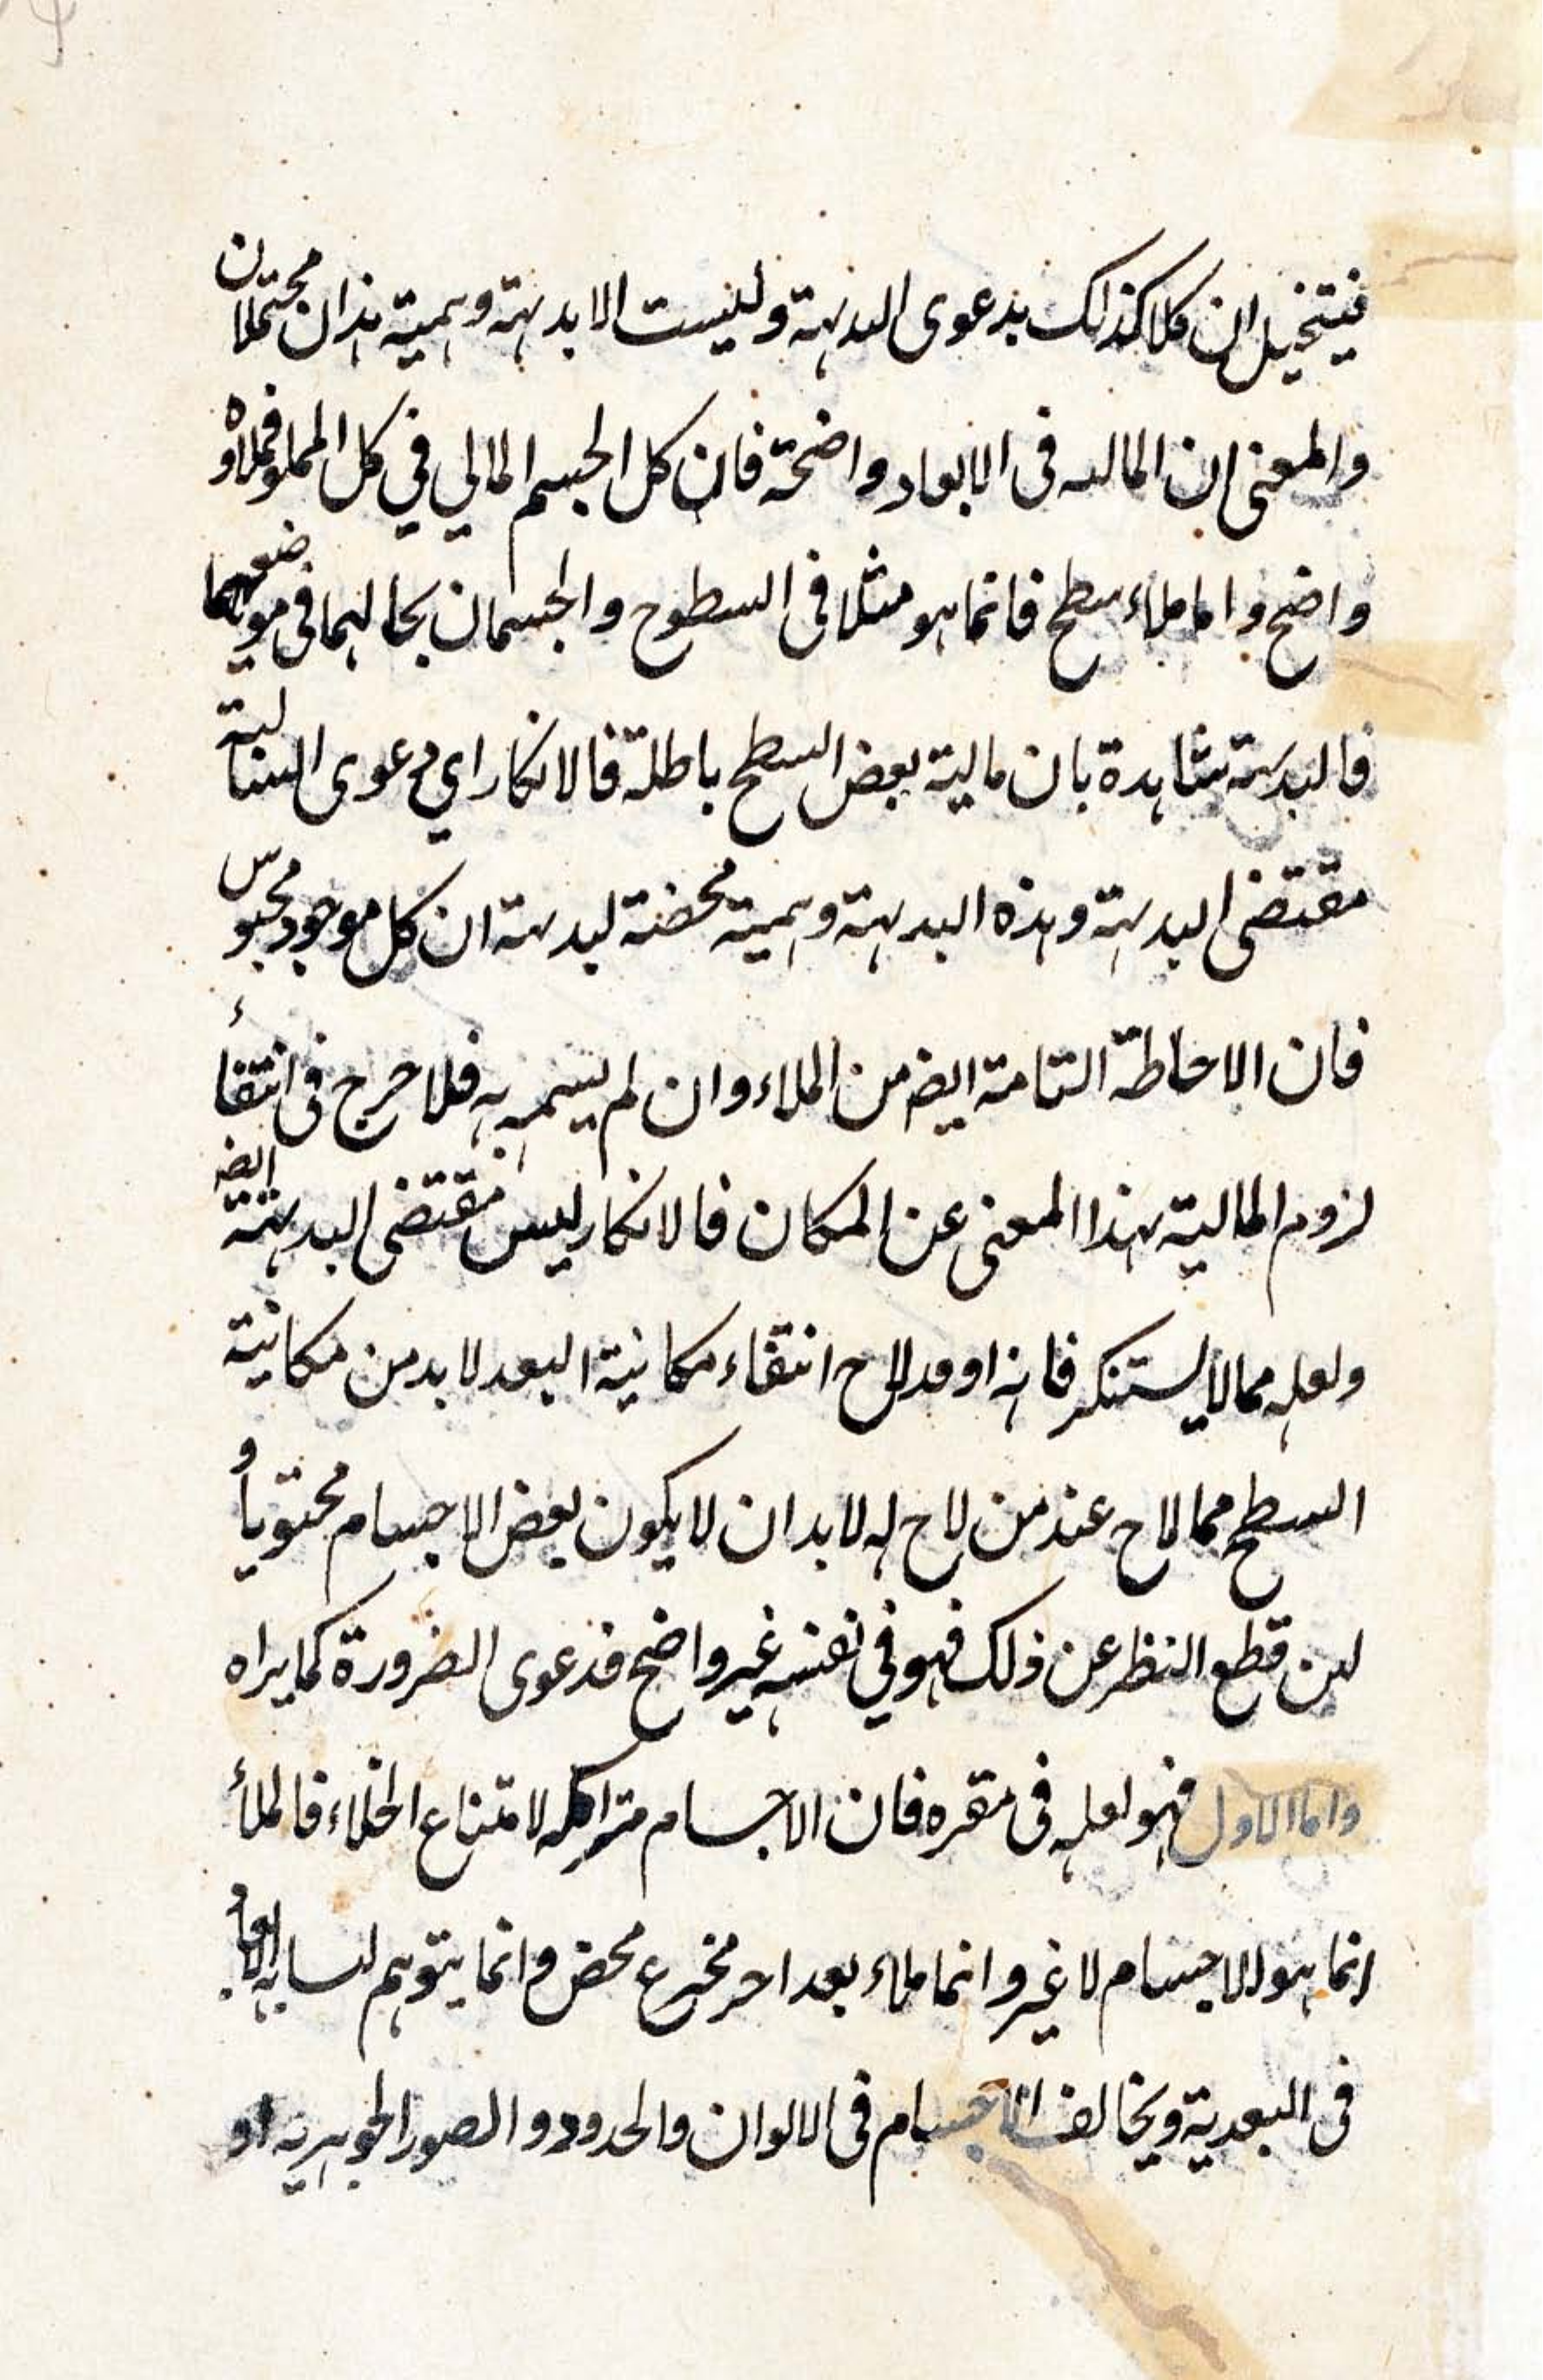 فيتخيل ان كلا كذلك بدعوى البديهة وليست الا بديهة وهمية هذان محتملان
والمعنى ان المالية فى الابعاد واضحة فان كل الجسم المالي في كل المملو فملاؤه
واضح واما ملاء سطح فانما هو مثلا فى السطوح والجسمان بحالهما فى موضعهما
فالبديهة شاهدة بان مالية بعض السطح باطلة فالانكار اي دعوى السالبة
مقتضى البديهة وهذه البديهة وهمية محضة لبديهة ان كل موجود محبوس
فان الاحاطة التامة ايضه من الملاء وان لم يسم به فلا حرج فى انتفاء
لزوم المالية بهذا المعنى عن المكان فالانكار ليس مقتضى البديهة ايضه
ولعله مما لا يستنكر فانه او قد لاح انتفاء مكانية البعد لا بد من مكانية
السطح مما لاح عند من لاح له لا بد ان لا يكون بعض الاجسام محتويا و
لئن قطع النظر عن ذلك فهو في نفسه غير واضح فدعوى الضرورة كما يراه
واما الاول فهو لعله فى مقره فان الاجسام متراكمه لامتناع الخلاء فالملأ
انما هو الاجسام لا غير وانما ملاء بعد اخر مخترع محض وانما يتوهم
فى البعدية ويخالف الاجسام فى الالوان والحدود والصور الجوهرية او